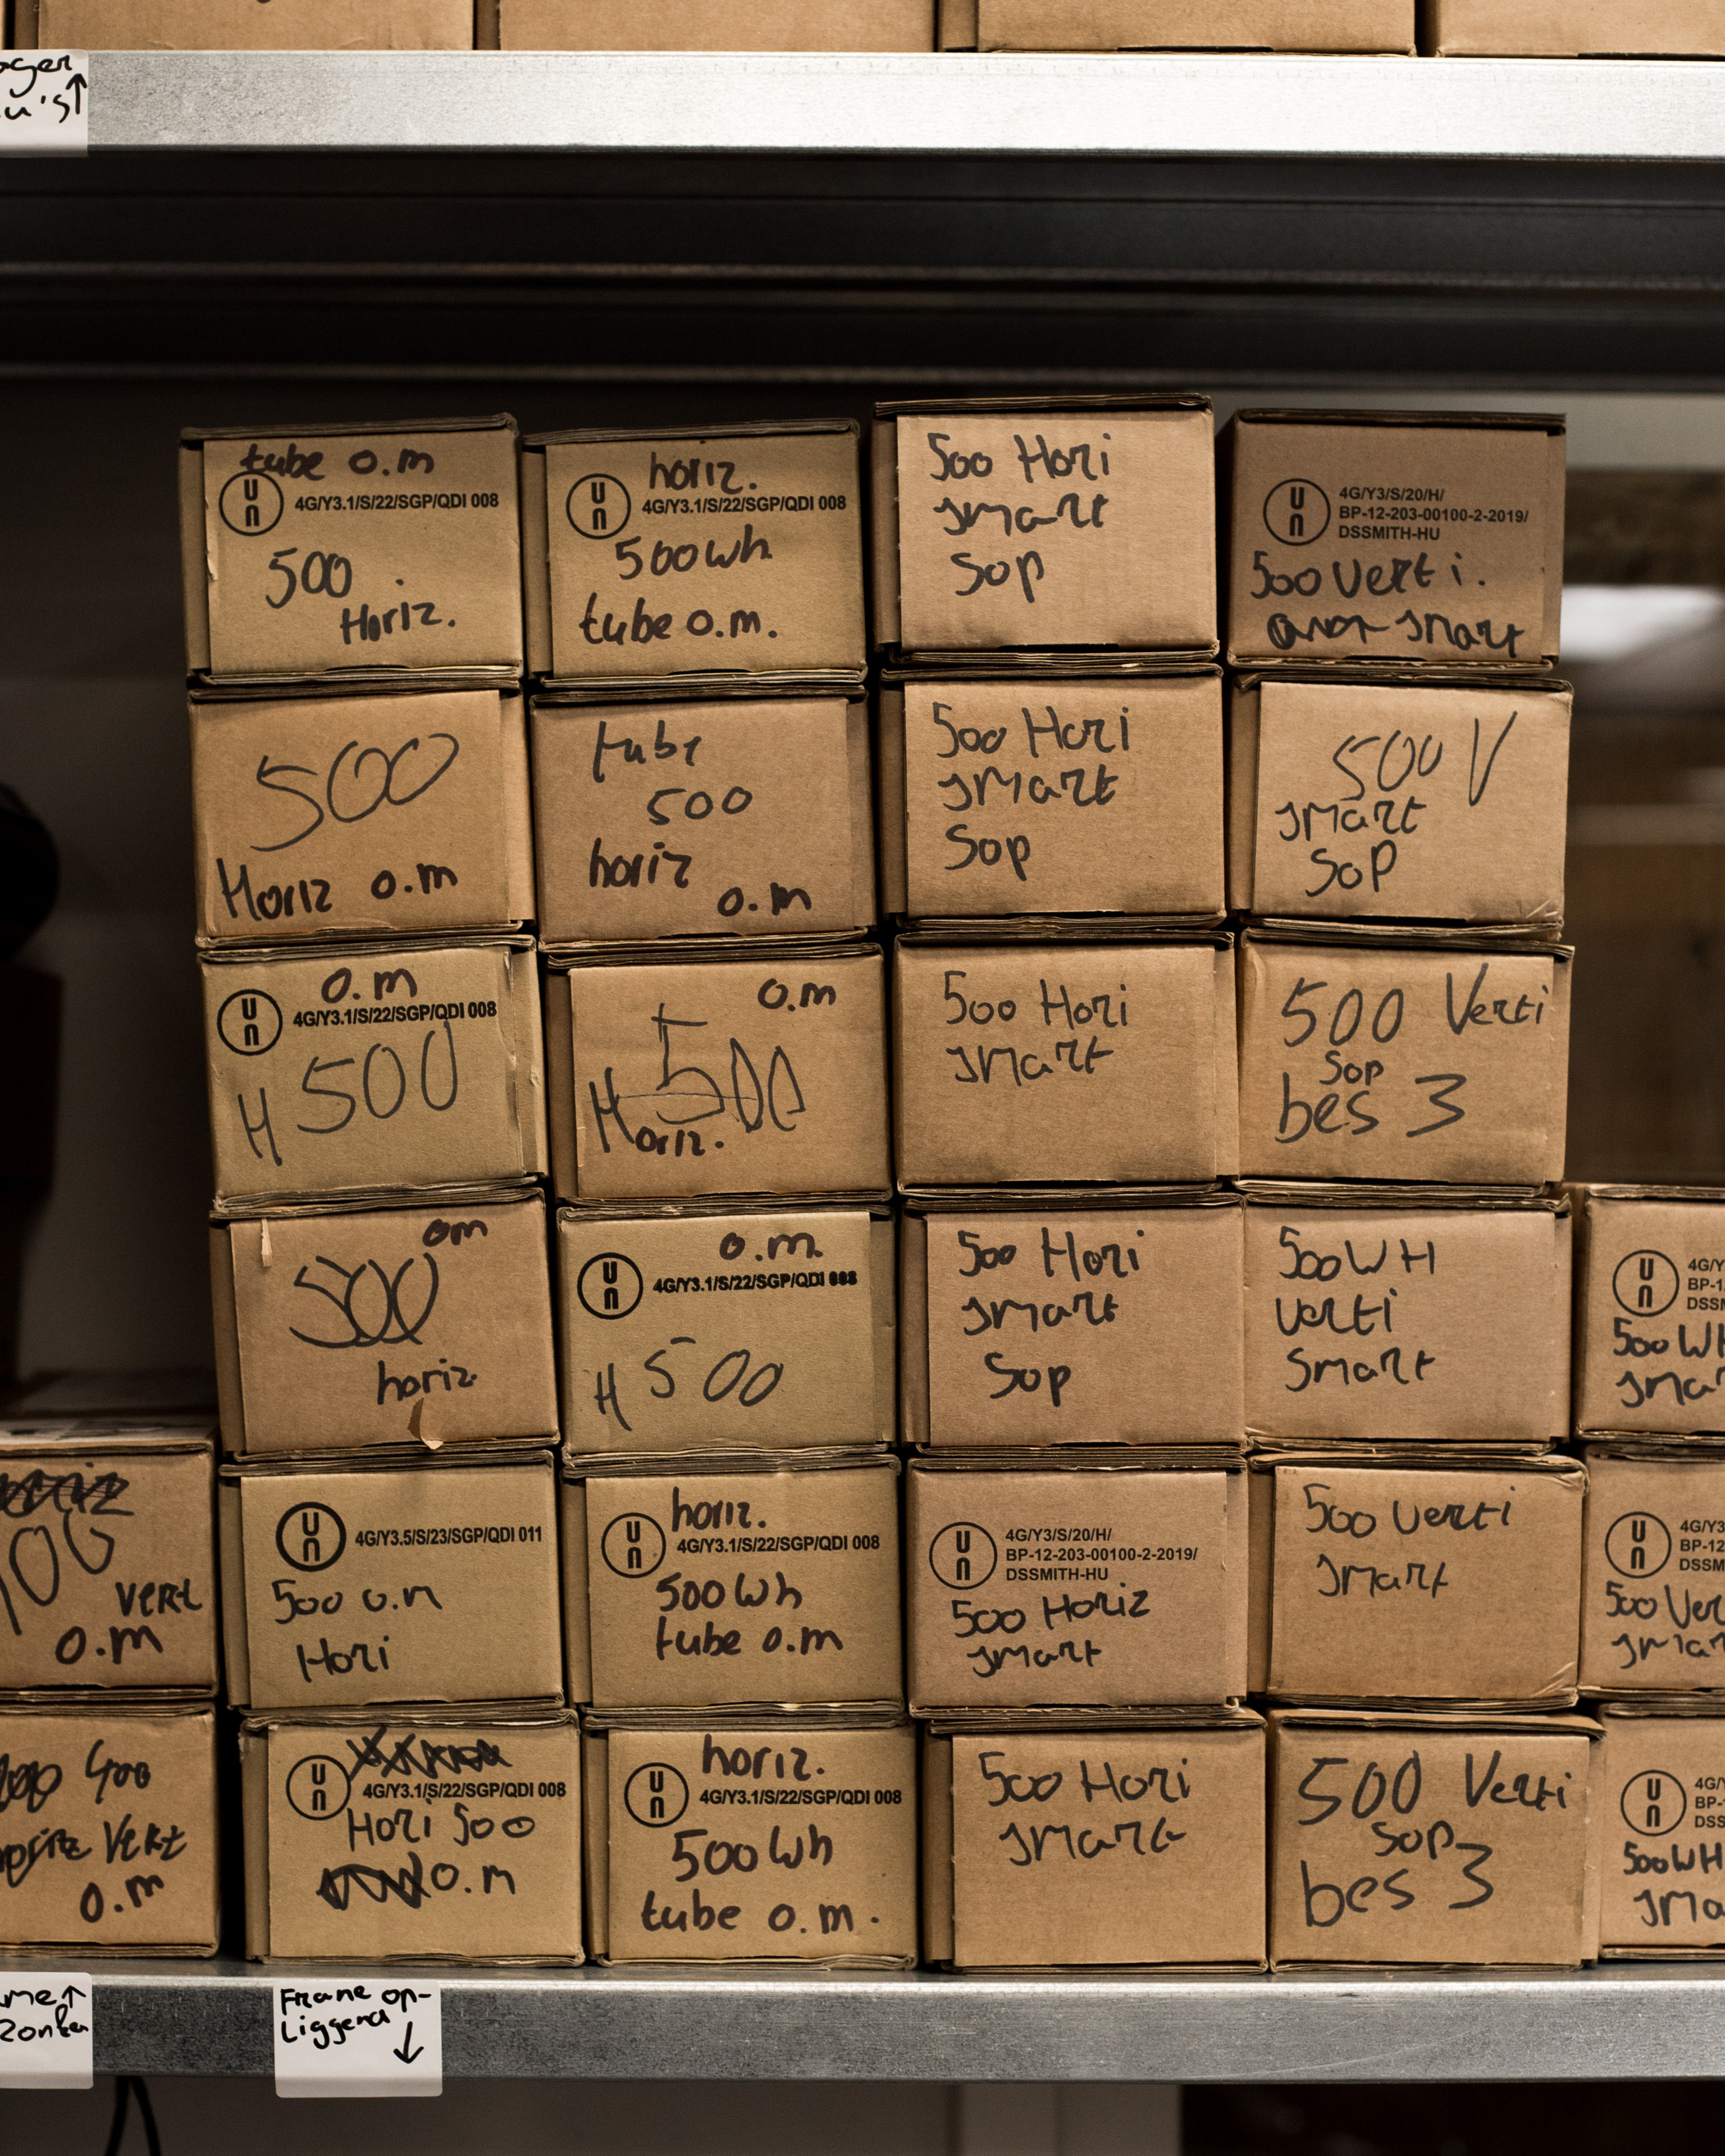 u's↑
tube o.m
UN
4G/Y3.1/S/22/SGP/QDI 008
500
Horiz.
horiz.
UN
4G/Y3.1/S/22/SGP/QDI 008
500wh
tube o.m.
500 Hori
smart
Sop
UN
4G/Y3/S/20/H/
BP-12-203-00100-2-2019/
DSSMITH-HU
500 Verti.
smart
500
Horiz o.m
tube
500
horiz
o.m
500 Hori
smart
Sop
500 V
smart
SoP
o.m
UN
4G/Y3.1/S/22/SGP/QDI 008
H 500
o.m
500
Horiz.
500 Hori
smart
500 Verti
Sop
bes 3
om
500
horiz.
o.m.
UN
4G/Y3.1/S/22/SGP/QDI 008
H 500
500 Hori
smart
Sop
500WH
Verti
Smart
UN
4G/Y
BP-1
DSSM
500 Wh
smar
vert
o.m
UN
4G/Y3.5/S/23/SGP/QDI 011
500 o.m
Hori
horiz.
UN
4G/Y3.1/S/22/SGP/QDI 008
500Wh
tube o.m
UN
4G/Y3/S/20/H/
BP-12-203-00100-2-2019/
DSSMITH-HU
500 Horiz
smart
500 Verti
smart
UN
4G/Y3
BP-12
DSSM
500 Ver
smar
400
Vert
o.m
UN
4G/Y3.1/S/22/SGP/QDI 008
Hori 500
o.m
horiz.
UN
4G/Y3.1/S/22/SGP/QDI 008
500Wh
tube o.m.
500 Hori
smart
500 Verti
Sop
bes 3
UN
4G/Y
BP-
DSS
500WH
sma
me↑
Frame op-
Liggend
↓